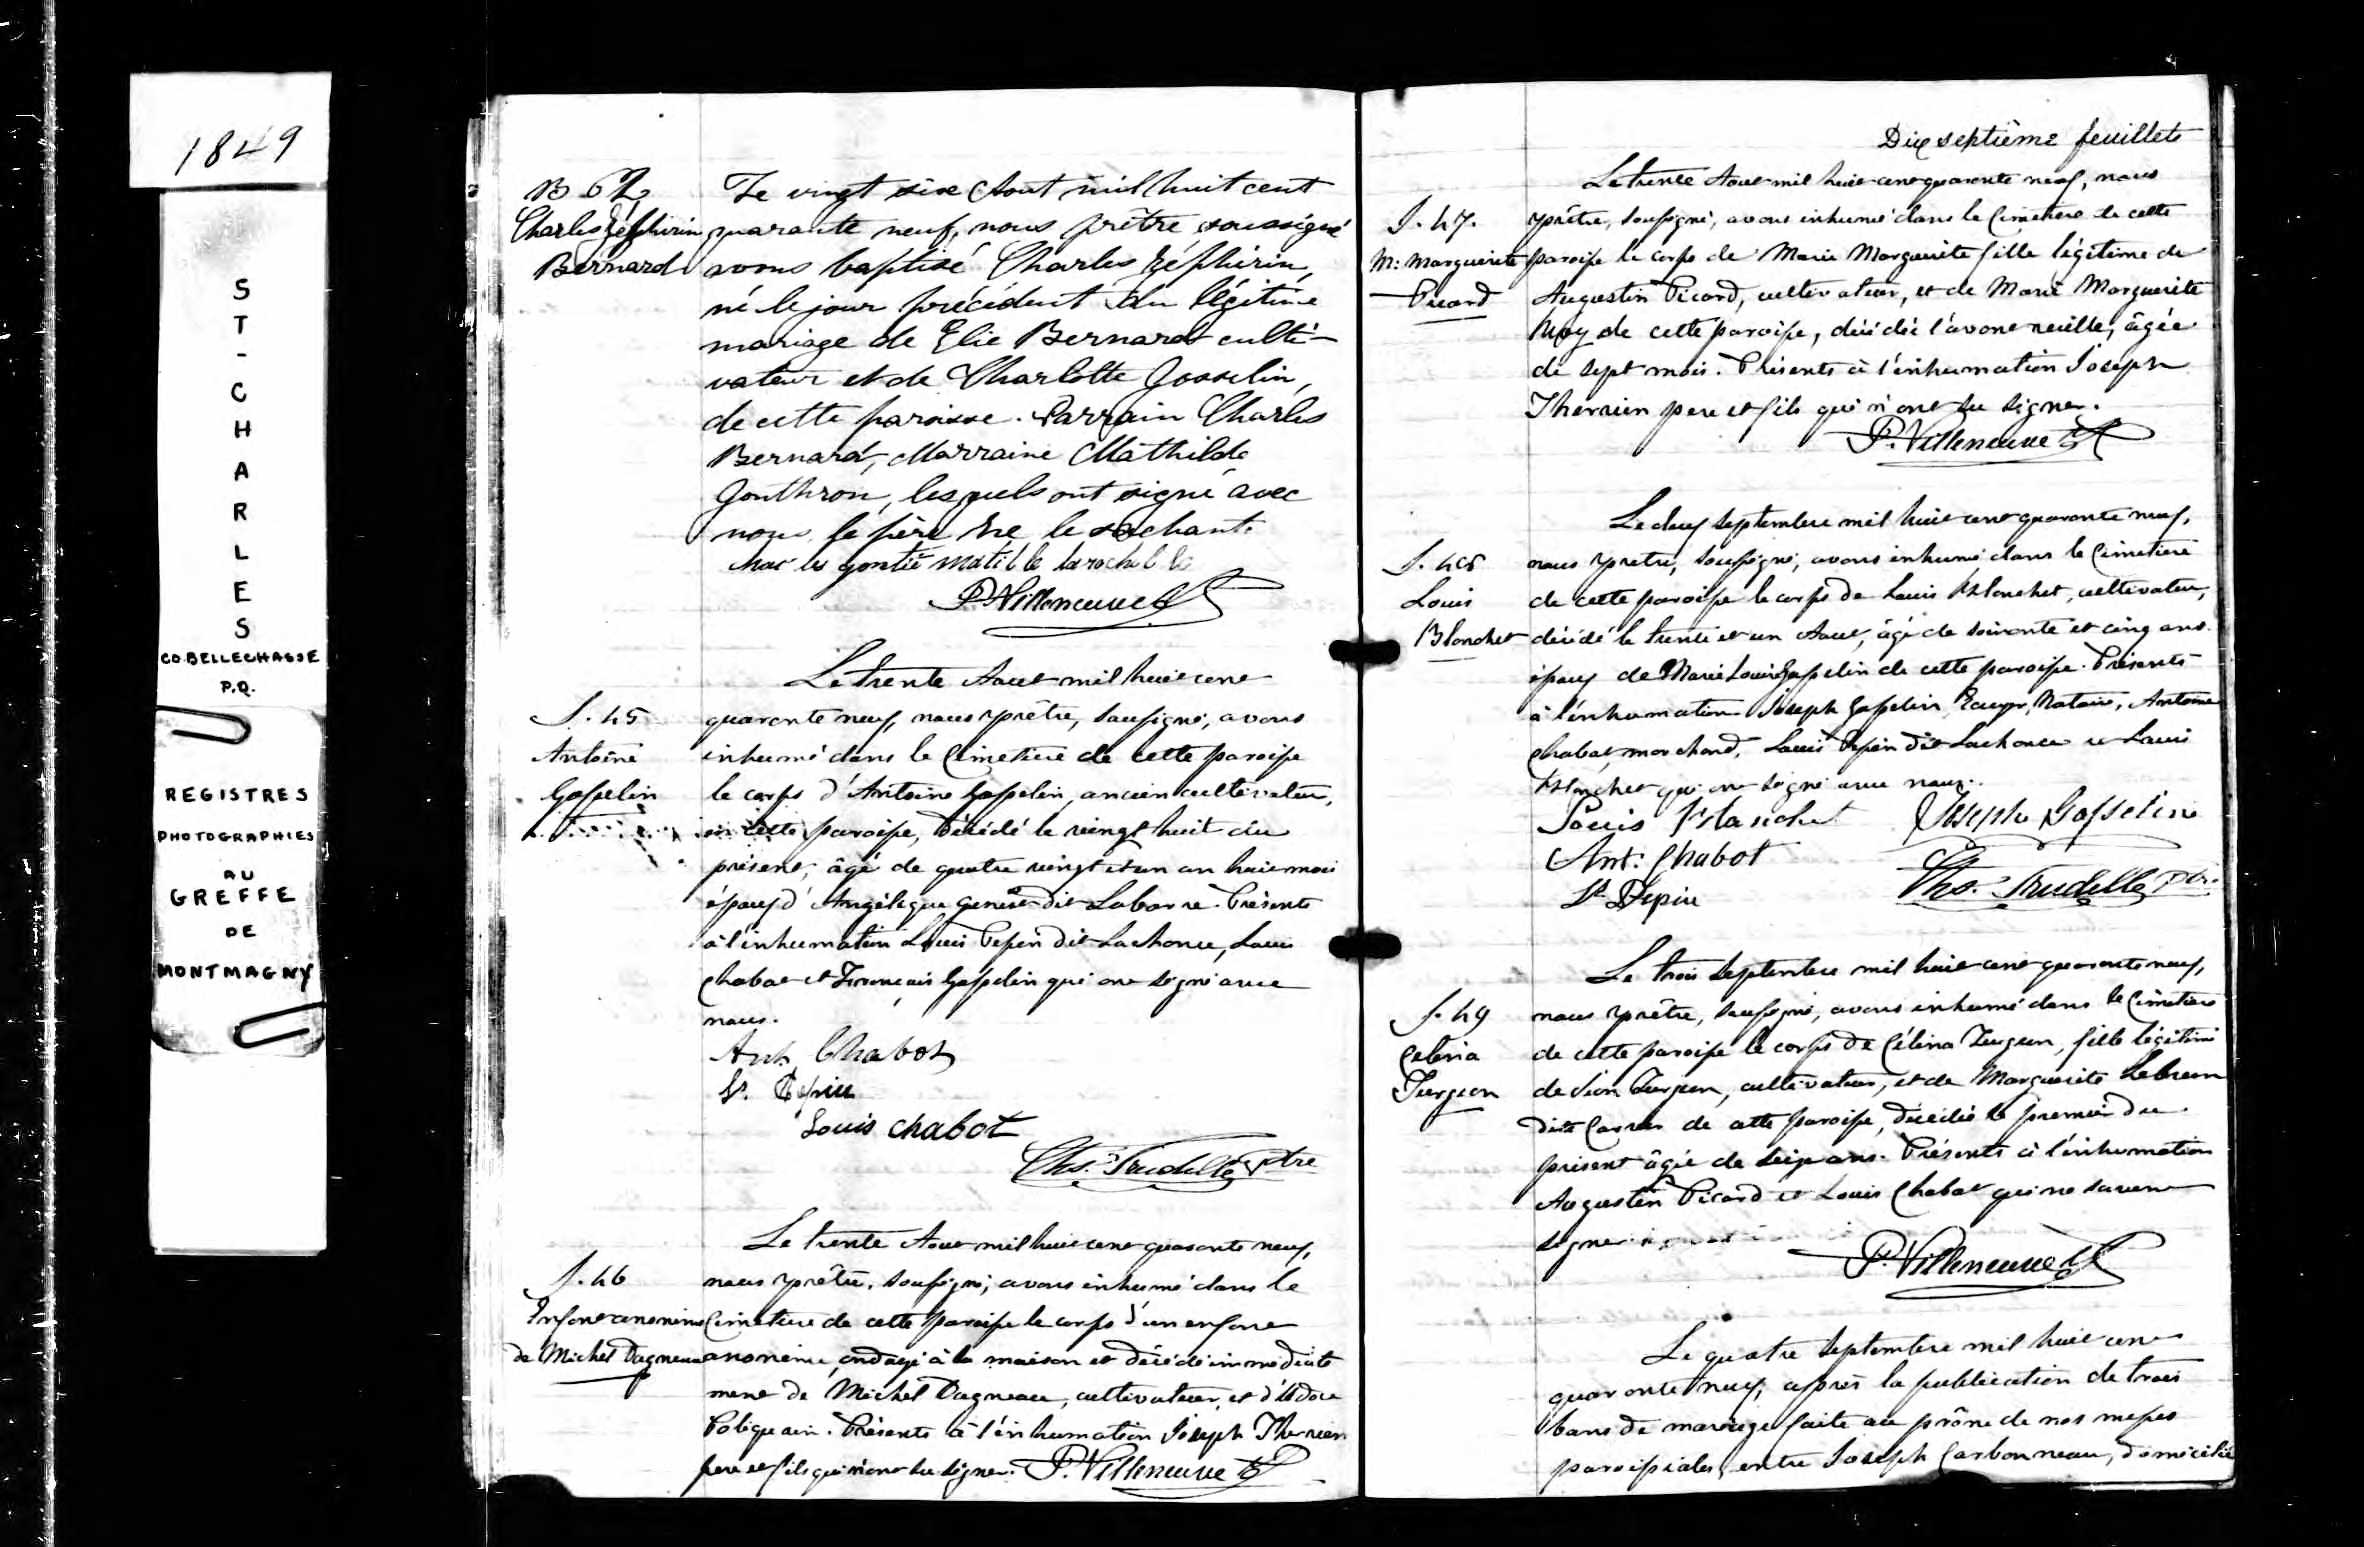 1849
ST-CHARLES
CO. BELLECHASSE
P.Q.
REGISTRES
PHOTOGRAPHIES
AU
GREFFE
DE
MONTMAGNY
B 62
Charles Zéphirin
Bernard
Le vingt six Aout mil huit cent
quarante neuf, nous prêtre soussigné
avons baptisé Charles Zéphirin,
né le jour précédent du légitime
mariage de Elie Bernard culti-
vateur et de Charlotte Gosselin,
de cette paroisse. Parrain Charles
Bernard, Marraine Mathilde
Gonthron, lesquels ont signé avec
nous, le père ne le sachant.
Char les gontié matil le larochel le
P. Villeneuve
S. 45
Antoine
Gosselin
Le trente Aout mil huit cent
quarante neuf, nous prêtre, soussigné, avons
inhumé dans le Cimetiere de cette paroisse
le corps d'Antoine Gosselin, ancien cultivateur,
en cette paroisse, décédé le vingt huit du
présent, âgé de quatre vingt et un an huit mois
époux d'Angélique dit Labarre. Présents
à l'inhumation Louis Pepin dit Lachance, Louis
Chabot et François Gosselin qui ont signé avec
nous.
Ant. Chabot
Ls. Pepin
Louis Chabot
Chs. Trudelle Ptre
S. 46
Enfant anonime
de Michel Dagneau
Le trente Aout mil huit cent quarante neuf,
nous prêtre, soussigné, avons inhumé dans le
Cimetiere de cette paroisse le corps d'un enfant
anonime, ondoyé à la maison et décédé immediate
ment de Michel Dagneau, cultivateur, et d'
Poliquain. Présents à l'inhumation Joseph Therrien
pere et fils qui n'ont su signer. P. Villeneuve
Dix septième feuillets
S. 47.
M: Marguerite
Picard
Le trente Aout mil huit cent quarante neuf, nous
prêtre, soussigné, avons inhumé dans le Cimetiere de cette
paroisse le corps de Marie Marguerite fille légitime de
Augustin Picard, cultivateur, et de Marie Marguerite
Roy de cette paroisse, décédée l'avant veille, âgée
de sept mois. Présents à l'inhumation Joseph
Therrien pere et fils qui n'ont su signer.
P. Villeneuve
S. 48
Louis
Blanchet
Le deux Septembre mil huit cent quarante neuf,
nous prêtre, soussigné, avons inhumé dans le Cimetiere
de cette paroisse le corps de Louis Blanchet, cultivateur,
décédé le trente et un Aout, âgé de soixante et cinq ans
époux de Marie Louise Gosselin de cette paroisse. Présents
à l'inhumation Joseph Gosselin, Ecuyer, Notaire, Antoine
Chabot marchand, Louis Pepin dit Lachance et Louis
Blanchet qui ont signé avec nous.
Louis Blanchet Joseph Gosselin
Ant. Chabot
Ls Pepin Chs. Trudelle Ptre
S. 49
Celina
Turgeon
Le trois Septembre mil huit cent quarante neuf,
nous prêtre, soussigné, avons inhumé dans le Cimetiere
de cette paroisse le corps de Célina Turgeon, fille légitime
de Turgeon, cultivateur, et de Marguerite Lebrun
dite Carrier de cette paroisse, décédée le premier du
présent âgée de seize ans. Présents à l'inhumation
Augustin Picard et Louis Chabot qui ne savent
signer
P. Villeneuve
Le quatre Septembre mil huit cent
quarante neuf, après la publication de trois
bans de mariage faite au prône de nos messes
paroissiales, entre Joseph Carbonneau, domicilié